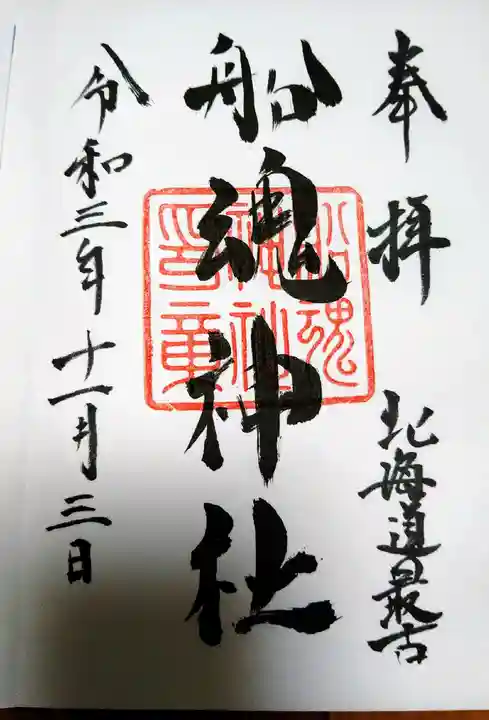 奉拝
北海道最古
船魂神社
船魂
神社
印章
令和三年十一月三日